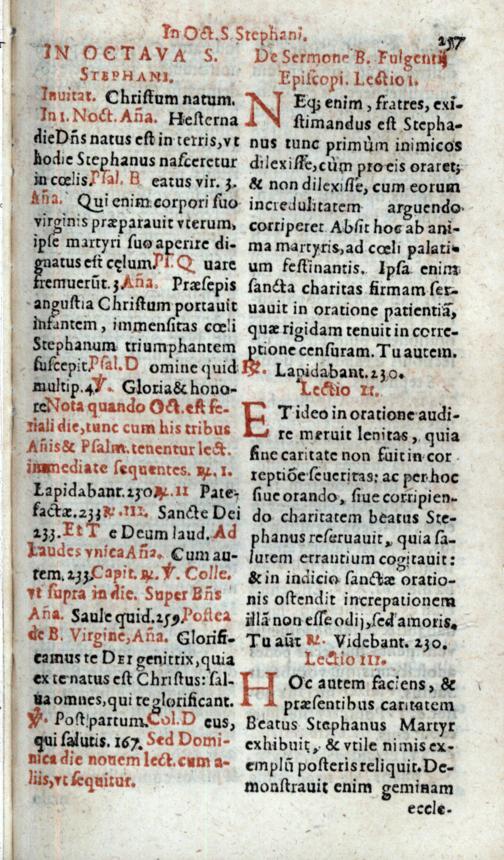 In Oct. S. Stephani. 257
IN OCTAVA S.
STEPHANI.
Inuitat. Christum natum.
In 1. Noct. Aña. Hesterna
die Dñs natus est in terris, vt
hodie Stephanus nasceretur
in cœlis. Psal. B eatus vir. 3.
Aña. Qui enim corpori suo
virginis præparauit vterum,
ipse martyri suo aperire di-
gnatus est cęlum. Ps. Q uare
fremuerūt. 3. Aña. Præsepis
angustia Christum portauit
infantem, immensitas cœli
Stephanum triumphantem
suscepit. Psal. D omine quid
multip. 4. ℣. Gloria & hono-
re Nota quando Oct. est fe-
riali die, tunc cum his tribus
Añis & Psalm. tenentur lect.
immediate sequentes. ℞. I.
Lapidabant. 230 ℞. II Pate-
factæ. 233 ℞. III. Sancte Dei
233. Et T e Deum laud. Ad
Laudes vnica Aña. Cum au-
tem. 233. Capit. ℞. ℣. Colle.
vt supra in die. Super Bñs
Aña. Saule quid. 259. Postea
de B. Virgine, Aña. Glorifi-
camus te DEI genitrix, quia
ex te natus est Christus: sal-
ua omnes, qui te glorificant.
℣. Post partum. Col. D eus,
qui salutis. 167. Sed Domi-
nica die nouem lect. cum a-
liis, vt sequitur.
De Sermone B. Fulgentij
Episcopi. Lectio 1.
NEq; enim, fratres, exi-
stimandus est Stepha-
nus tunc primùm inimicos
dilexisse, cùm pro eis oraret;
& non dilexisse, cum eorum
incredulitatem arguendo
corriperet. Absit hoc ab ani-
ma martyris, ad cœli palati-
um festinantis. Ipsa enim
sancta charitas firmam ser-
uauit in oratione patientiā,
quæ rigidam tenuit in corre-
ptione censuram. Tu autem.
℞. Lapidabant. 230.
Lectio II.
ET ideo in oratione audi-
re meruit lenitas, quia
sine caritate non fuit in cor
reptiõe seueritas: ac per hoc
siue orando, siue corripien-
do charitatem beatus Ste-
phanus reseruauit, quia sa-
lutem errantium cogitauit:
& in indicio sanctæ oratio-
nis ostendit increpationem
illā non esse odij, sed amoris.
Tu aūt ℞. Videbant. 230.
Lectio III.
HOc autem faciens, &
præsentibus caritatem
Beatus Stephanus Martyr
exhibuit, & vtile nimis ex-
emplū posteris reliquit. De-
monstrauit enim geminam
eccle-